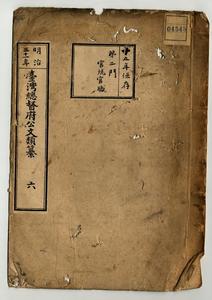 十五年保存
第二門
官規官職
明治
三十一年
臺灣總督府公文類纂
六